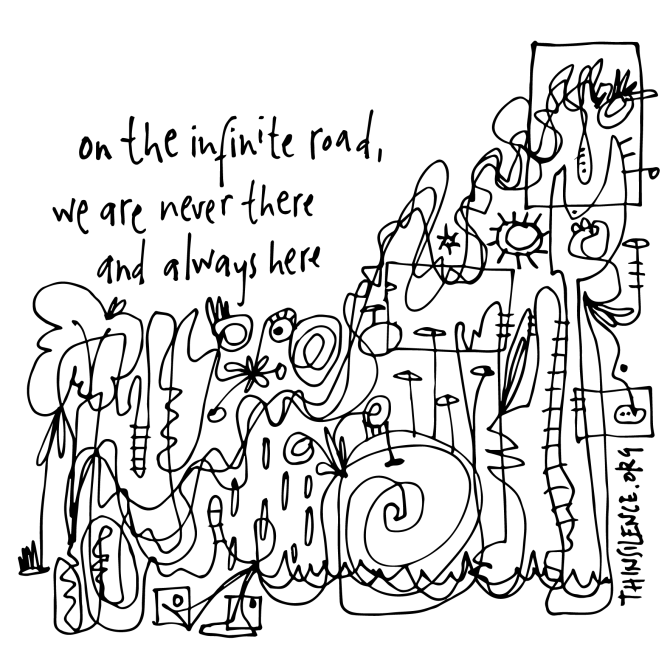 on the infinite road,
we are never there
and always here
THINSILENCE.ORG